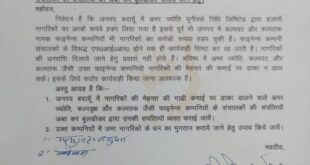 महोदय,
निवेदन है कि जनपद बदायूँ में अमर ज्योति यूनीवर्स निधि लिमिटेड द्वारा हजारों
नागरिकों का अरबों रूपये हड़प लिया गया है इससे पूर्व भी जनपद में कल्पवट और कल्पतरू
फाइनेन्स कम्पनियों नागरिकों का करोड़ों रूपया हड़प चुकी हैं। फाइनेन्स कम्पनी
संचालकों के विरुद्ध एफ०आई०आर० होने तक ही कार्यवाही सिमट कर रह जाती है। नागरिकों
की धनराशि दिलाये जाने हेतु प्रयास नहीं होते हैं। भविष्य में अमर ज्योति, कल्पवट और
कल्पतरू जैसी उक्त फाइनेन्स कम्पनियाँ नागरिकों की मेहनत की कमाई पर डाका न डाल
सकें। इसके लिये कठोर कार्यवाही किया जाना आवश्यक है।
अस्तु आग्रह है कि:-
1. जनपद बदायूँ में नागरिकों की मेहनत की गाढ़ी कमाई पर डाका डालने वाले अमर
ज्योति, कल्पवृक्ष और कल्पतरू जैसी फाइनेन्स कम्पनियों के संचालकों की संपत्तियां
जब्त कर बुलडोजर द्वारा उनकी संपत्तियां ध्वस्त कराई जायें।
2. उक्त कम्पनियों में जमा नागरिकों के धन का भुगतान कराये जाने हेतु उपाय किये जायें।
भवदीय,
1-
2-